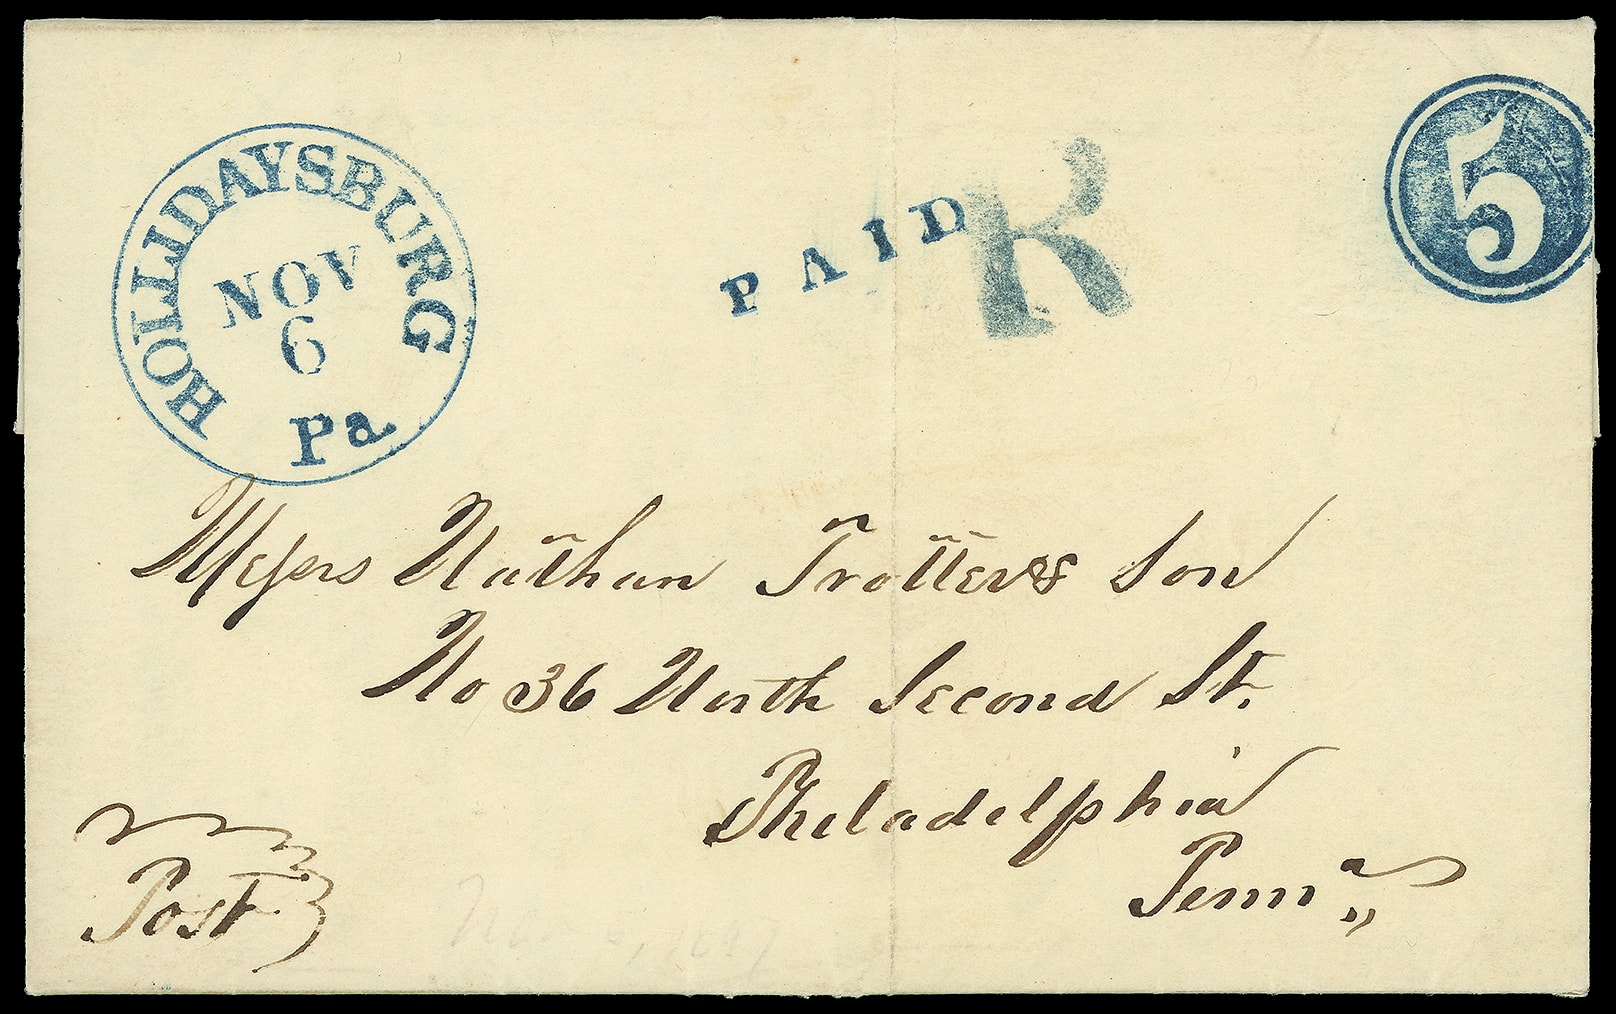 HOLLIDAYSBURG
NOV
6
Pa.
PAID
R
5
Messrs Nathan Trotter & Son
No 36 North Second St.
Philadelphia
Penna
Post